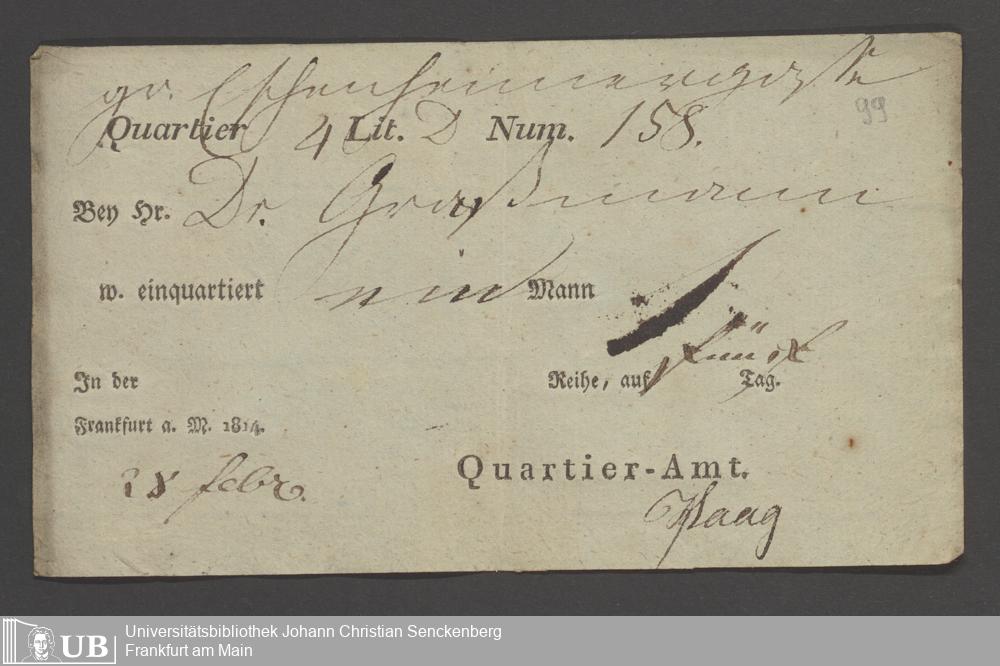 gr. Eschenheimergasse
99
Quartier 4 Lit. D Num. 158.
Bey Hr. Dr. Graßmann
w. einquartiert ein Mann
fünf
In der Reihe, auf Tag.
Frankfurt a. M. 1814.
28 febr.
Quartier-Amt.
Haag
UB
Universitätsbibliothek Johann Christian Senckenberg
Frankfurt am Main